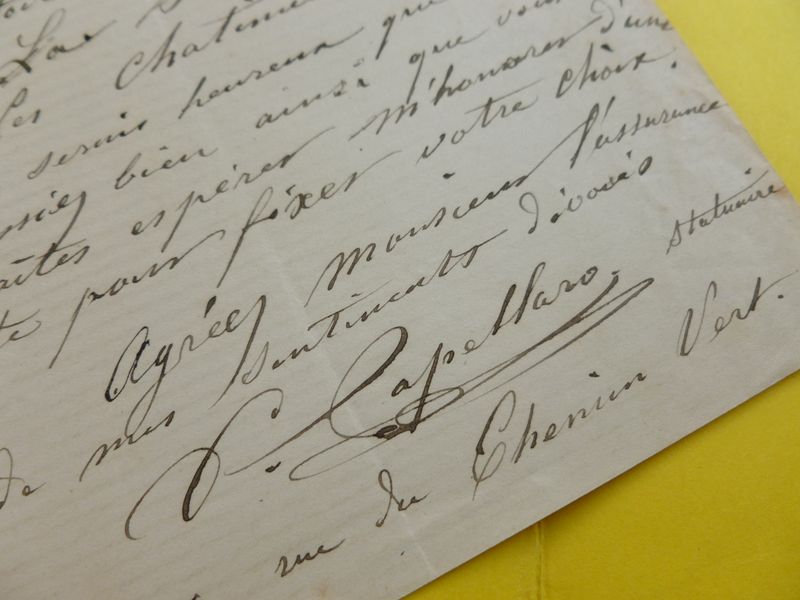 La
Les Chatim
serais heureux que
bien ainsi que vous
espérer m'honorer d'une
pour fixer votre choix.
Agréez monsieur l'assurance
de mes sentiments dévoués
P. Capellaro. Statuaire
rue du Chemin Vert.